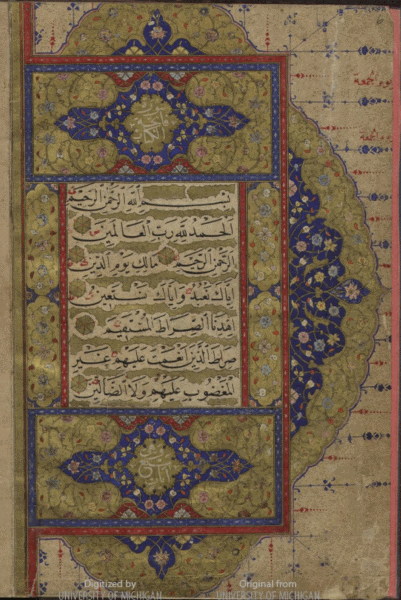 فاتحة
الكتاب
يوم الجمعة
يوم الجمعة
بِسْمِ اللَّهِ الرَّحْمَٰنِ الرَّحِيمِ
الْحَمْدُ لِلَّهِ رَبِّ الْعَالَمِينَ
الرَّحْمَٰنِ الرَّحِيمِ مَالِكِ يَوْمِ الدِّينِ
إِيَّاكَ نَعْبُدُ وَإِيَّاكَ نَسْتَعِينُ
اهْدِنَا الصِّرَاطَ الْمُسْتَقِيمَ
صِرَاطَ الَّذِينَ أَنْعَمْتَ عَلَيْهِمْ غَيْرِ
الْمَغْضُوبِ عَلَيْهِمْ وَلَا الضَّالِّينَ
Digitized by
UNIVERSITY OF MICHIGAN
Original from
UNIVERSITY OF MICHIGAN